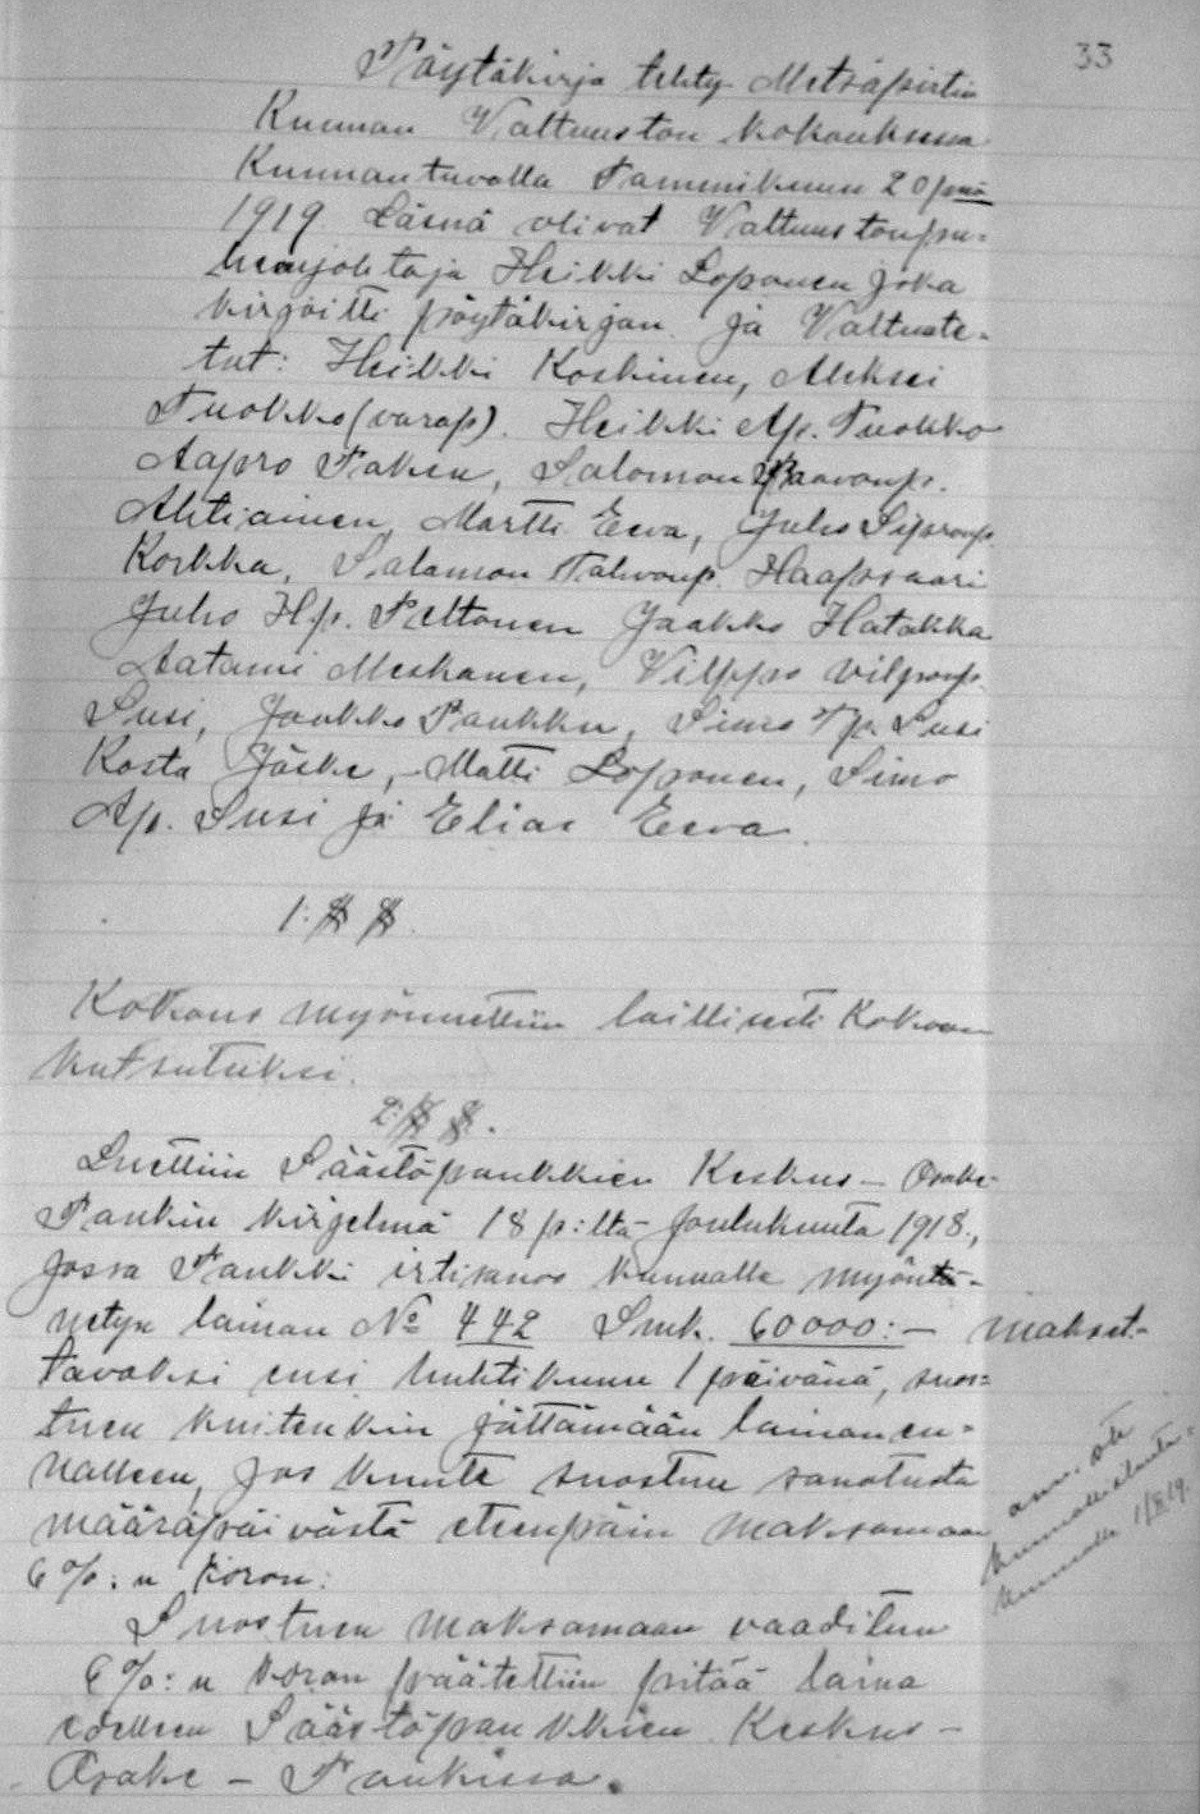 33
Pöytäkirja tehty Metsäpirtin
Kunnan Valtuuston kokouksessa
Kunnantuvalla Tammikuun 20 pnä
1919. Läsnä olivat Valtuustonpu-
heenjohtaja Heikki Loponen joka
kirjoitti pöytäkirjan ja Valtuute-
tut: Heikki Koskinen, Aleksei
Tuokko (varap). Heikki Ap. Tuokko
Aapro Paksu, Salomon Paavonp.
Ahtiainen, Martti Eeva, Juho Sipronp.
Korkka, Salamon Tahvonp. Haapsaari
Juho Hp. Peltonen Jaakko Hatakka
Aatami Meskanen, Vilppo Vilponp.
Susi, Jaakko Paukku, Simo Tp. Susi
Kosta Jäske, Matti Loponen, Simo
Ap. Susi ja Elias Eeva.
1:§ §.
Kokous myönnettiin laillisesti kokoon
kutsutuksi.
2:§ §.
Luettiin Säästöpankkien Keskus-Osake-
Pankin kirjelmä 18 p:ltä Joulukuuta 1918.,
jossa Pankki irtisanoo kunnalle myön-
netyn lainan No 442 Smk. 60000:- makset-
tavaksi ensi huhtikuun 1 päivänä, suos-
tuen kuitenkin jättämään lainan en-
nalleen, jos kunta suostuu sanotusta
määräpäivästä eteenpäin maksamaan
6%:n koron:
Suostuen maksamaan vaaditun
6%:n koron päätettiin pitää laina
edelleen Säästöpankkien Keskus-
Osake-Pankissa.
ann. ote
kunnallislauta-
kunnalle 1/II 19.